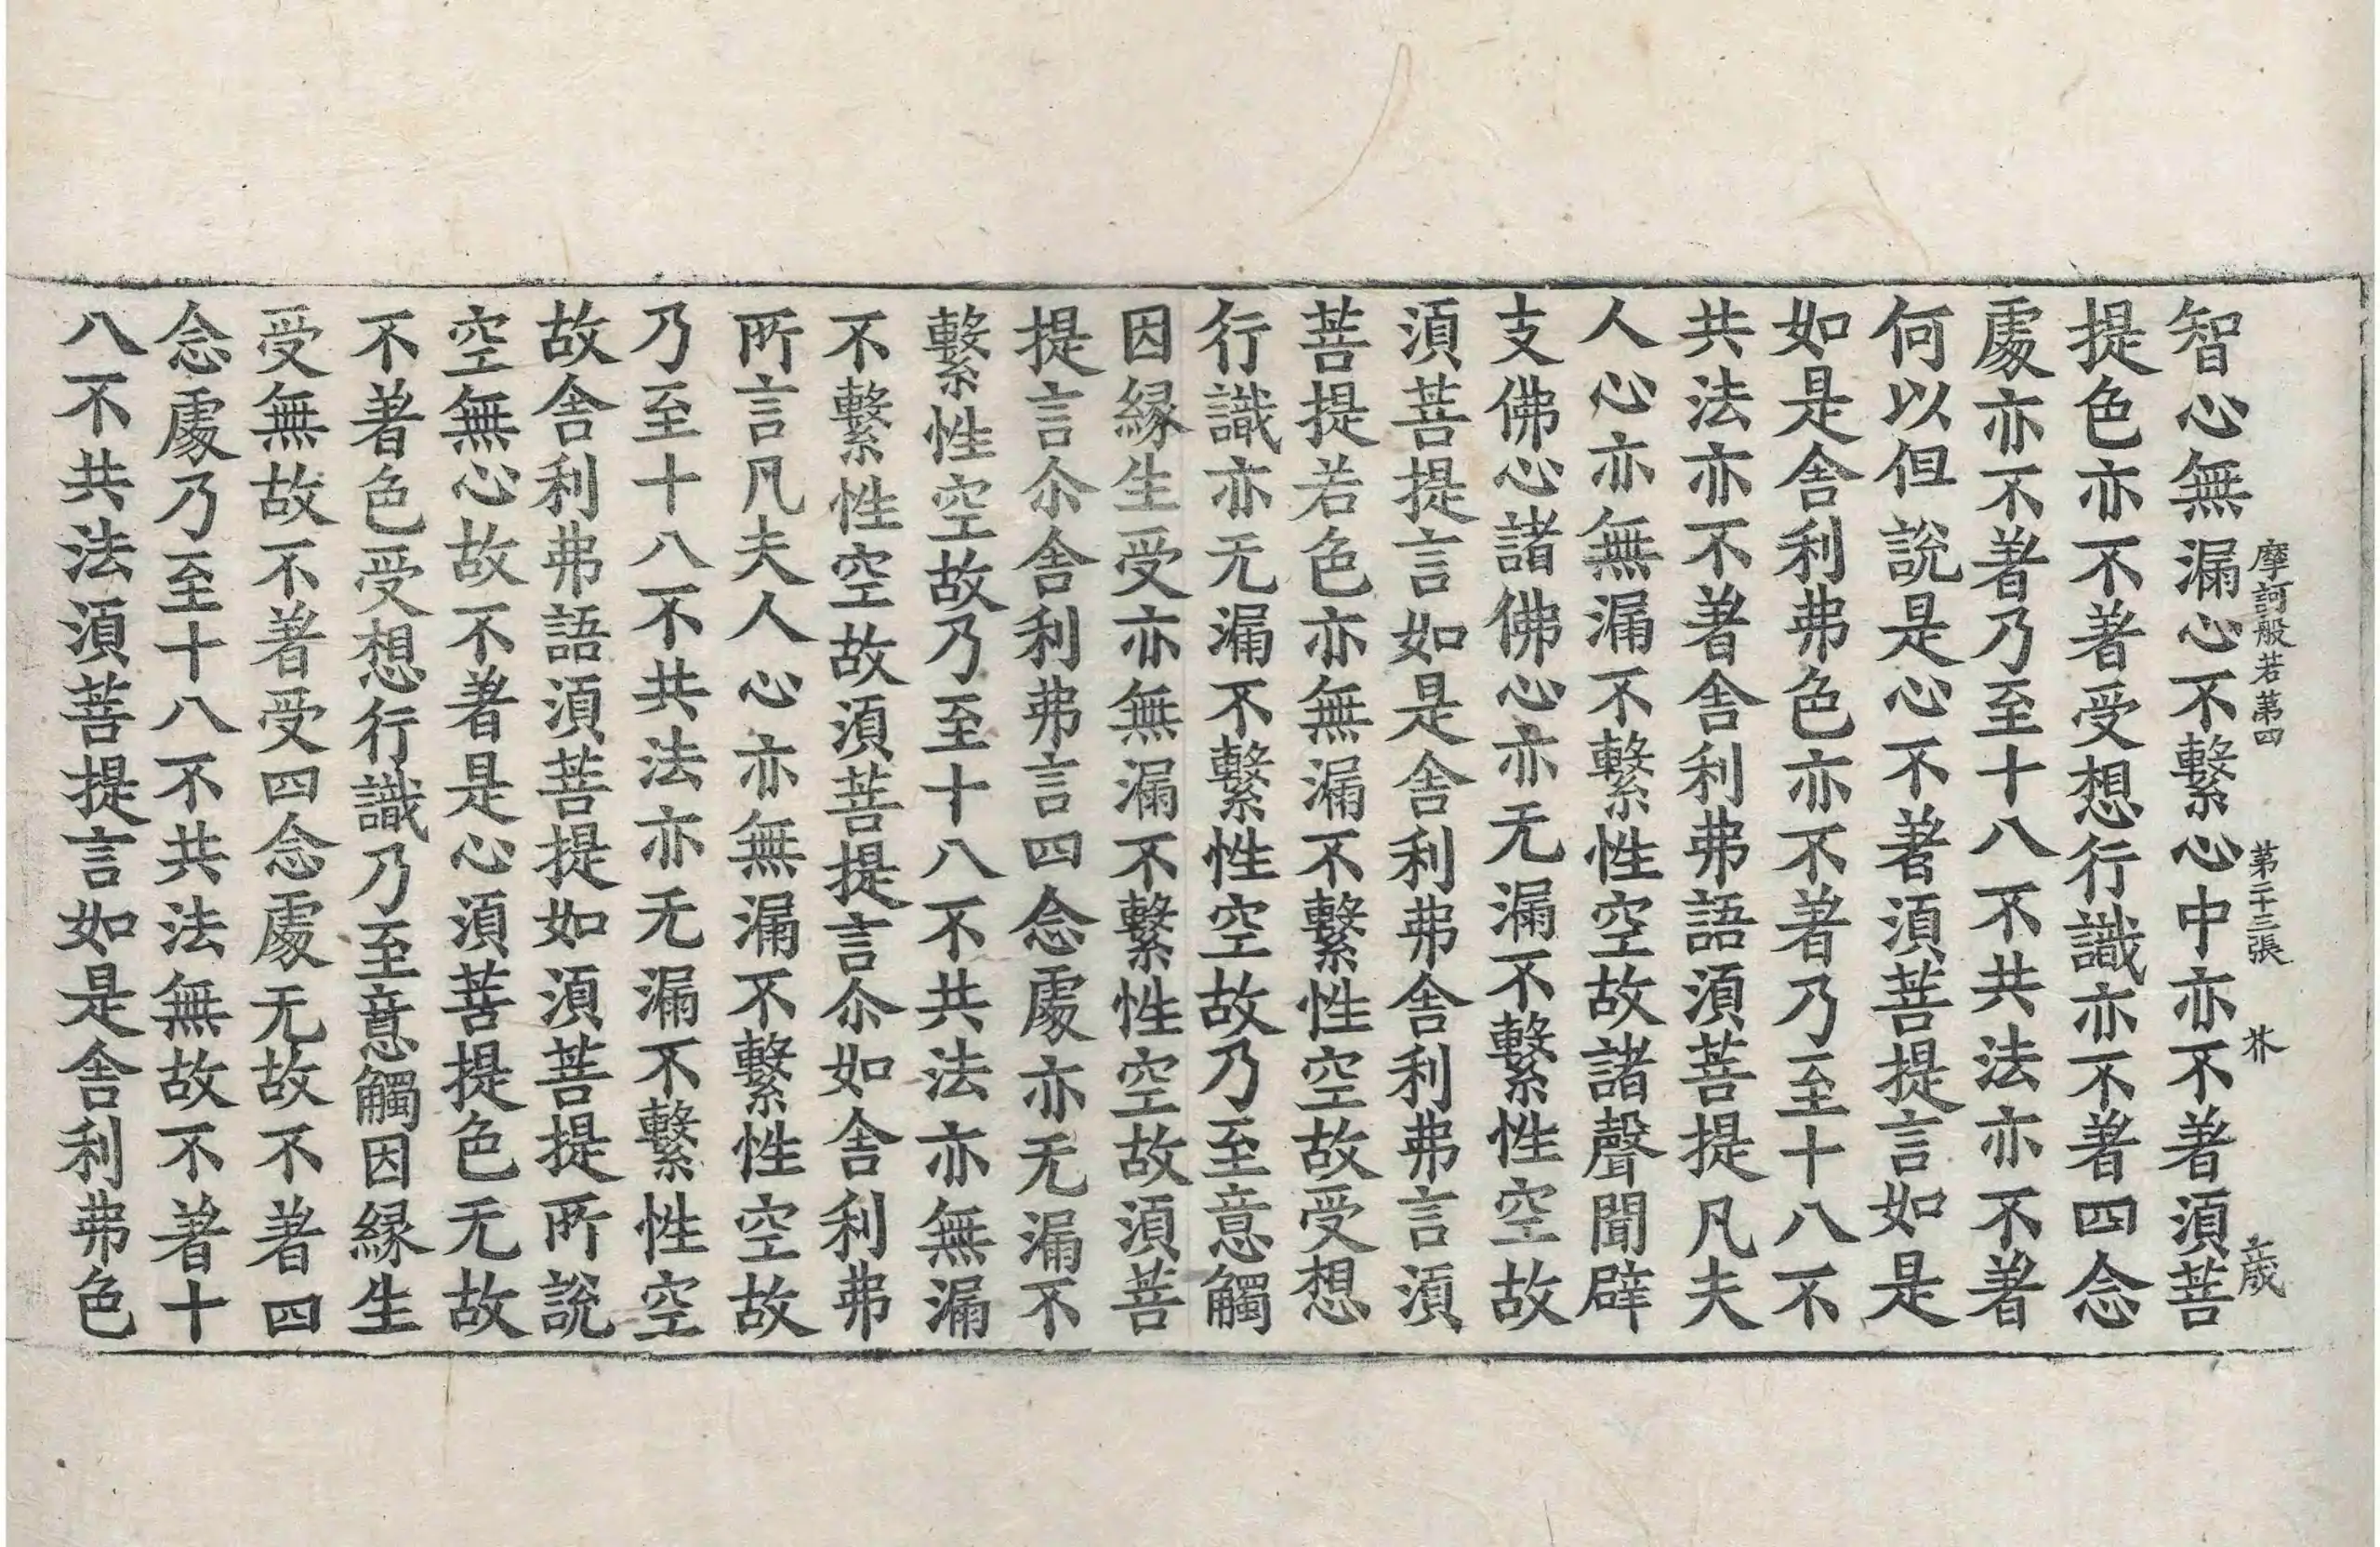 摩訶般若第四 第二十三張 芥
智心無漏心不繫心中亦不著須菩
提色亦不著受想行識亦不著四念
處亦不著乃至十八不共法亦不著
何以但說是心不著須菩提言如是
如是舍利弗色亦不著乃至十八不
共法亦不著舍利弗語須菩提凡夫
人心亦無漏不繫性空故諸聲聞辟
支佛心諸佛心亦无漏不繫性空故
須菩提言如是舍利弗舍利弗言須
菩提若色亦無漏不繫性空故受想
行識亦无漏不繫性空故乃至意觸
因緣生受亦無漏不繫性空故須菩
提言尒舍利弗言四念處亦无漏不
繫性空故乃至十八不共法亦無漏
不繫性空故須菩提言尒如舍利弗
所言凡夫人心亦無漏不繫性空故
乃至十八不共法亦无漏不繫性空
故舍利弗語須菩提如須菩提所說
空無心故不著是心須菩提色无故
不著色受想行識乃至意觸因緣生
受無故不著受四念處无故不著四
念處乃至十八不共法無故不著十
八不共法須菩提言如是舍利弗色